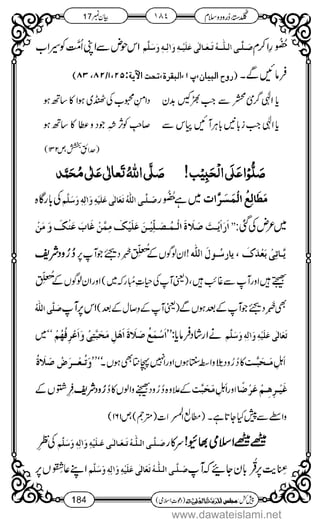 بیان نمبر 17
۱۸٤
گلدستۂ دُرودوسلام
حُضُورِ اکرم صَلَّی اللہُ تَعَالٰی عَلَیْہِ وَاٰلِہٖ وَسَلَّم اس حوض سے اپنی اُمَّت کو سیراب
فرمائیں گے۔ (روح البیان، پ۱، البقرۃ، تحت الآیۃ: ۲۵، ۱/ ۸۲، ۸۳)
یا الٰہی گرمیِ محشر سے جب بھڑکیں بدن دامنِ محبوب کی ٹھنڈی ہوا کا ساتھ ہو
یا الٰہی جب زبانیں باہر آئیں پیاس سے صاحبِ کوثر شہِ جود و عطا کا ساتھ ہو
(حدائقِ بخشش، ص۱۳۲)
صَلُّوْا عَلَی الْحَبِیْبِ! صَلَّی اللہُ تَعَالٰی عَلٰی مُحَمَّد
مَطَالِعُ الْمَسَرَّات میں ہے حُضُور صَلَّی اللہُ تَعَالٰی عَلَیْہِ وَاٰلِہٖ وَسَلَّم کی بارگاہ
میں عرض کی گئی: ”اَرَاَیْتَ صَلَاۃَ الْمُصَلِّیْنَ عَلَیْکَ مِمَّنْ غَابَ عَنْکَ وَ مَنْ
یَّاْتِیْ بَعْدَکَ، یارسولَ اللہ! اُن لوگوں کے مُتَعَلِّق خبر دیجئے جو آپ پر دُرُود شریف
بھیجتے ہیں اور آپ سے غائب ہیں، (یعنی آپ کی حیاتِ مُبارکہ میں) اور ان لوگوں کے مُتَعَلِّق
بھی خبر دیجئے جو آپ کے بعد ہوں گے (یعنی آپ کے وصال کے بعد) اس پر آپ صَلَّی اللہُ
تَعَالٰی عَلَیْہِ وَاٰلِہٖ وَسَلَّم نے ارشاد فرمایا: ”اَسْمَعُ صَلَاۃَ اَہْلِ مَحَبَّتِیْ وَاَعْرِفُہُمْ“ میں
اہلِ مَحَبَّت کا دُرُود بلاواسطہ سنتا ہوں اور انہیں پہچانتا بھی ہوں۔“ ”وَتُعْرَضُ عَلَیَّ صَلَاۃُ
غَیْرِہِمْ عَرْضًا اور اہلِ مَحَبَّت کے علاوہ دُرُود بھیجنے والوں کا دُرُود شریف فرشتوں کے
واسطے سے پیش کیا جاتا ہے۔ (مطالع المسرات (مترجم)، ص۱۶۱)
میٹھے میٹھے اسلامی بھائیو! سرکار صَلَّی اللہُ تَعَالٰی عَلَیْہِ وَاٰلِہٖ وَسَلَّم کی نظرِ
عنایت پر قُربان جائیے کہ آپ صَلَّی اللہُ تَعَالٰی عَلَیْہِ وَاٰلِہٖ وَسَلَّم اپنے عاشقوں پر
184
پیش کش: مجلس اَلْمَدِیْنَۃُ الْعِلْمِیَّۃ (دعوتِ اسلامی)
www.dawateislami.net